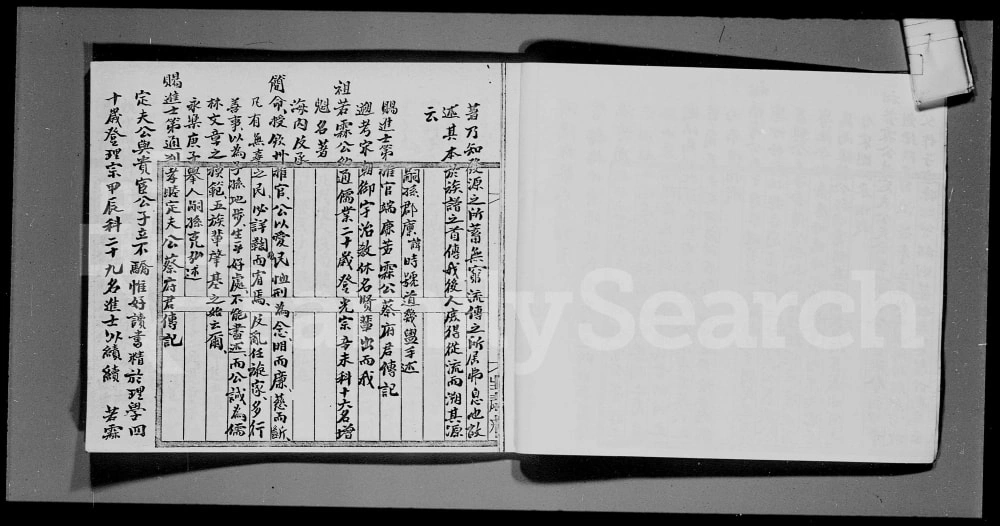 菖乃知發源之所蓄無窮流傳之所居弗息也故
述其本於族譜之首傳我後人庶得從流而溯其源
云
嗣孫郡廣諱時號道幾盥手述
賜進士第推官端康若霖公蔡府君傳記
遡考宋朝御宇治教休名賢輩出而我
祖若霖公幼通儒業二十歲登光宗辛未科十六名增
魁名著
海內反承
簡命授欽州推官公以愛民恤刑為念明而廉慈而斷
凡有無辜之民必詳鞫而宥焉反亂任誰家多行
善事以為子孫地步生平好處不能盡述而公誠為儒
林文章之模範五族肇基之始云爾
永樂庚子舉人嗣孫 述
賜進士第通判孝睦定夫公蔡府君傳記
定夫公與貴宦公子立不驕惟好讀書精於理學四
十歲登理宗甲辰科二十九名進士以績績 若霖
FamilySearch